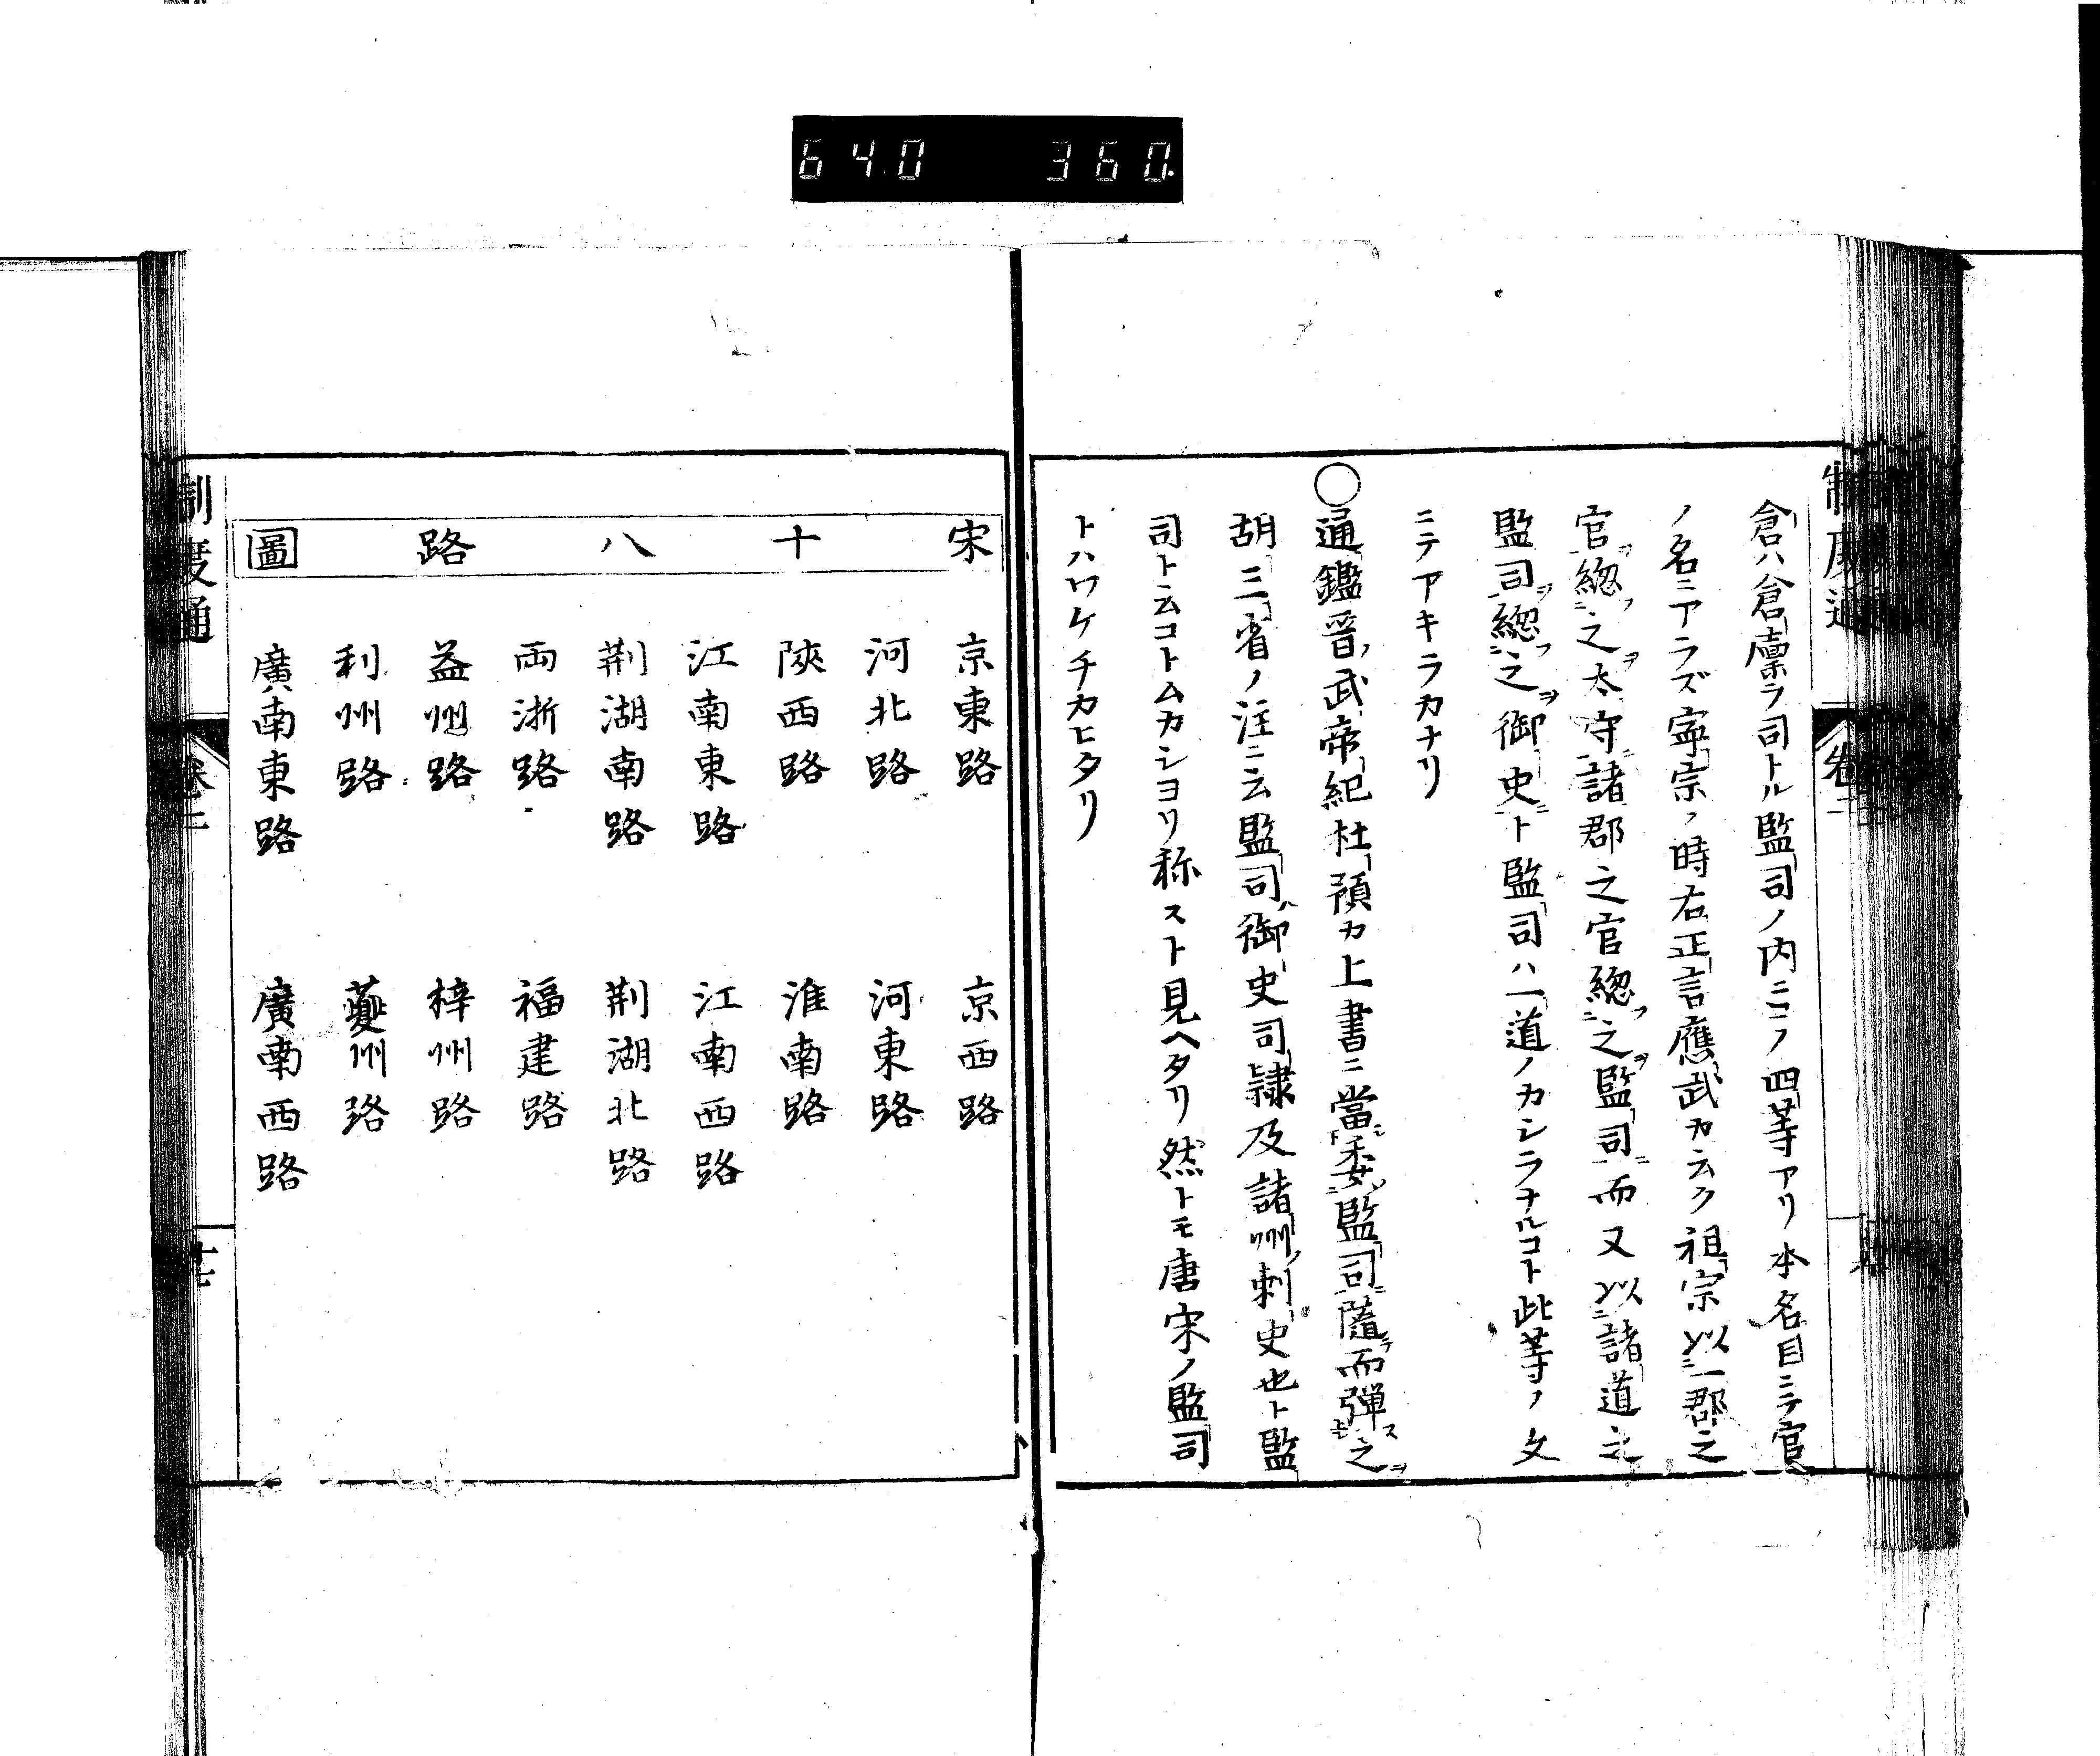 640 360.
倉ハ倉廩ヲ司トル監司ノ内ニコノ四等アリ本名目ニテ官
ノ名ニアラズ寧宗ノ時右正言應武カ云ク祖宗以一郡之
官總之太守諸郡之官總之監司而又以諸道之
監司總之御史ト監司ハ一道ノカシラナルコト此等ノ文
ニテアキラカナリ
○通鑑晉武帝紀杜預カ上書ニ當委監司隨而彈之
胡三省ノ注ニ云監司御史司隷及諸州刺史也ト監
司ト云コトムカシヨリ称スト見ヘタリ然トモ唐宋ノ監司
トハワケチカヒタリ
宋十八路圖
京東路 京西路
河北路 河東路
陝西路 淮南路
江南東路 江南西路
荆湖南路 荆湖北路
両浙路 福建路
益州路 梓州路
利州路 夔州路
廣南東路 廣南西路
制度通 卷二